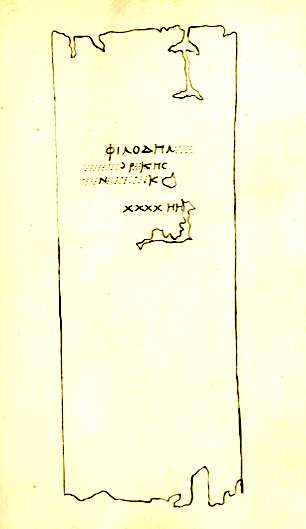 ΦΙΛΟΔΗΛ
ΟΡΚΗϹ
Ν Κ
ΧΧΧΧ ΗΗ